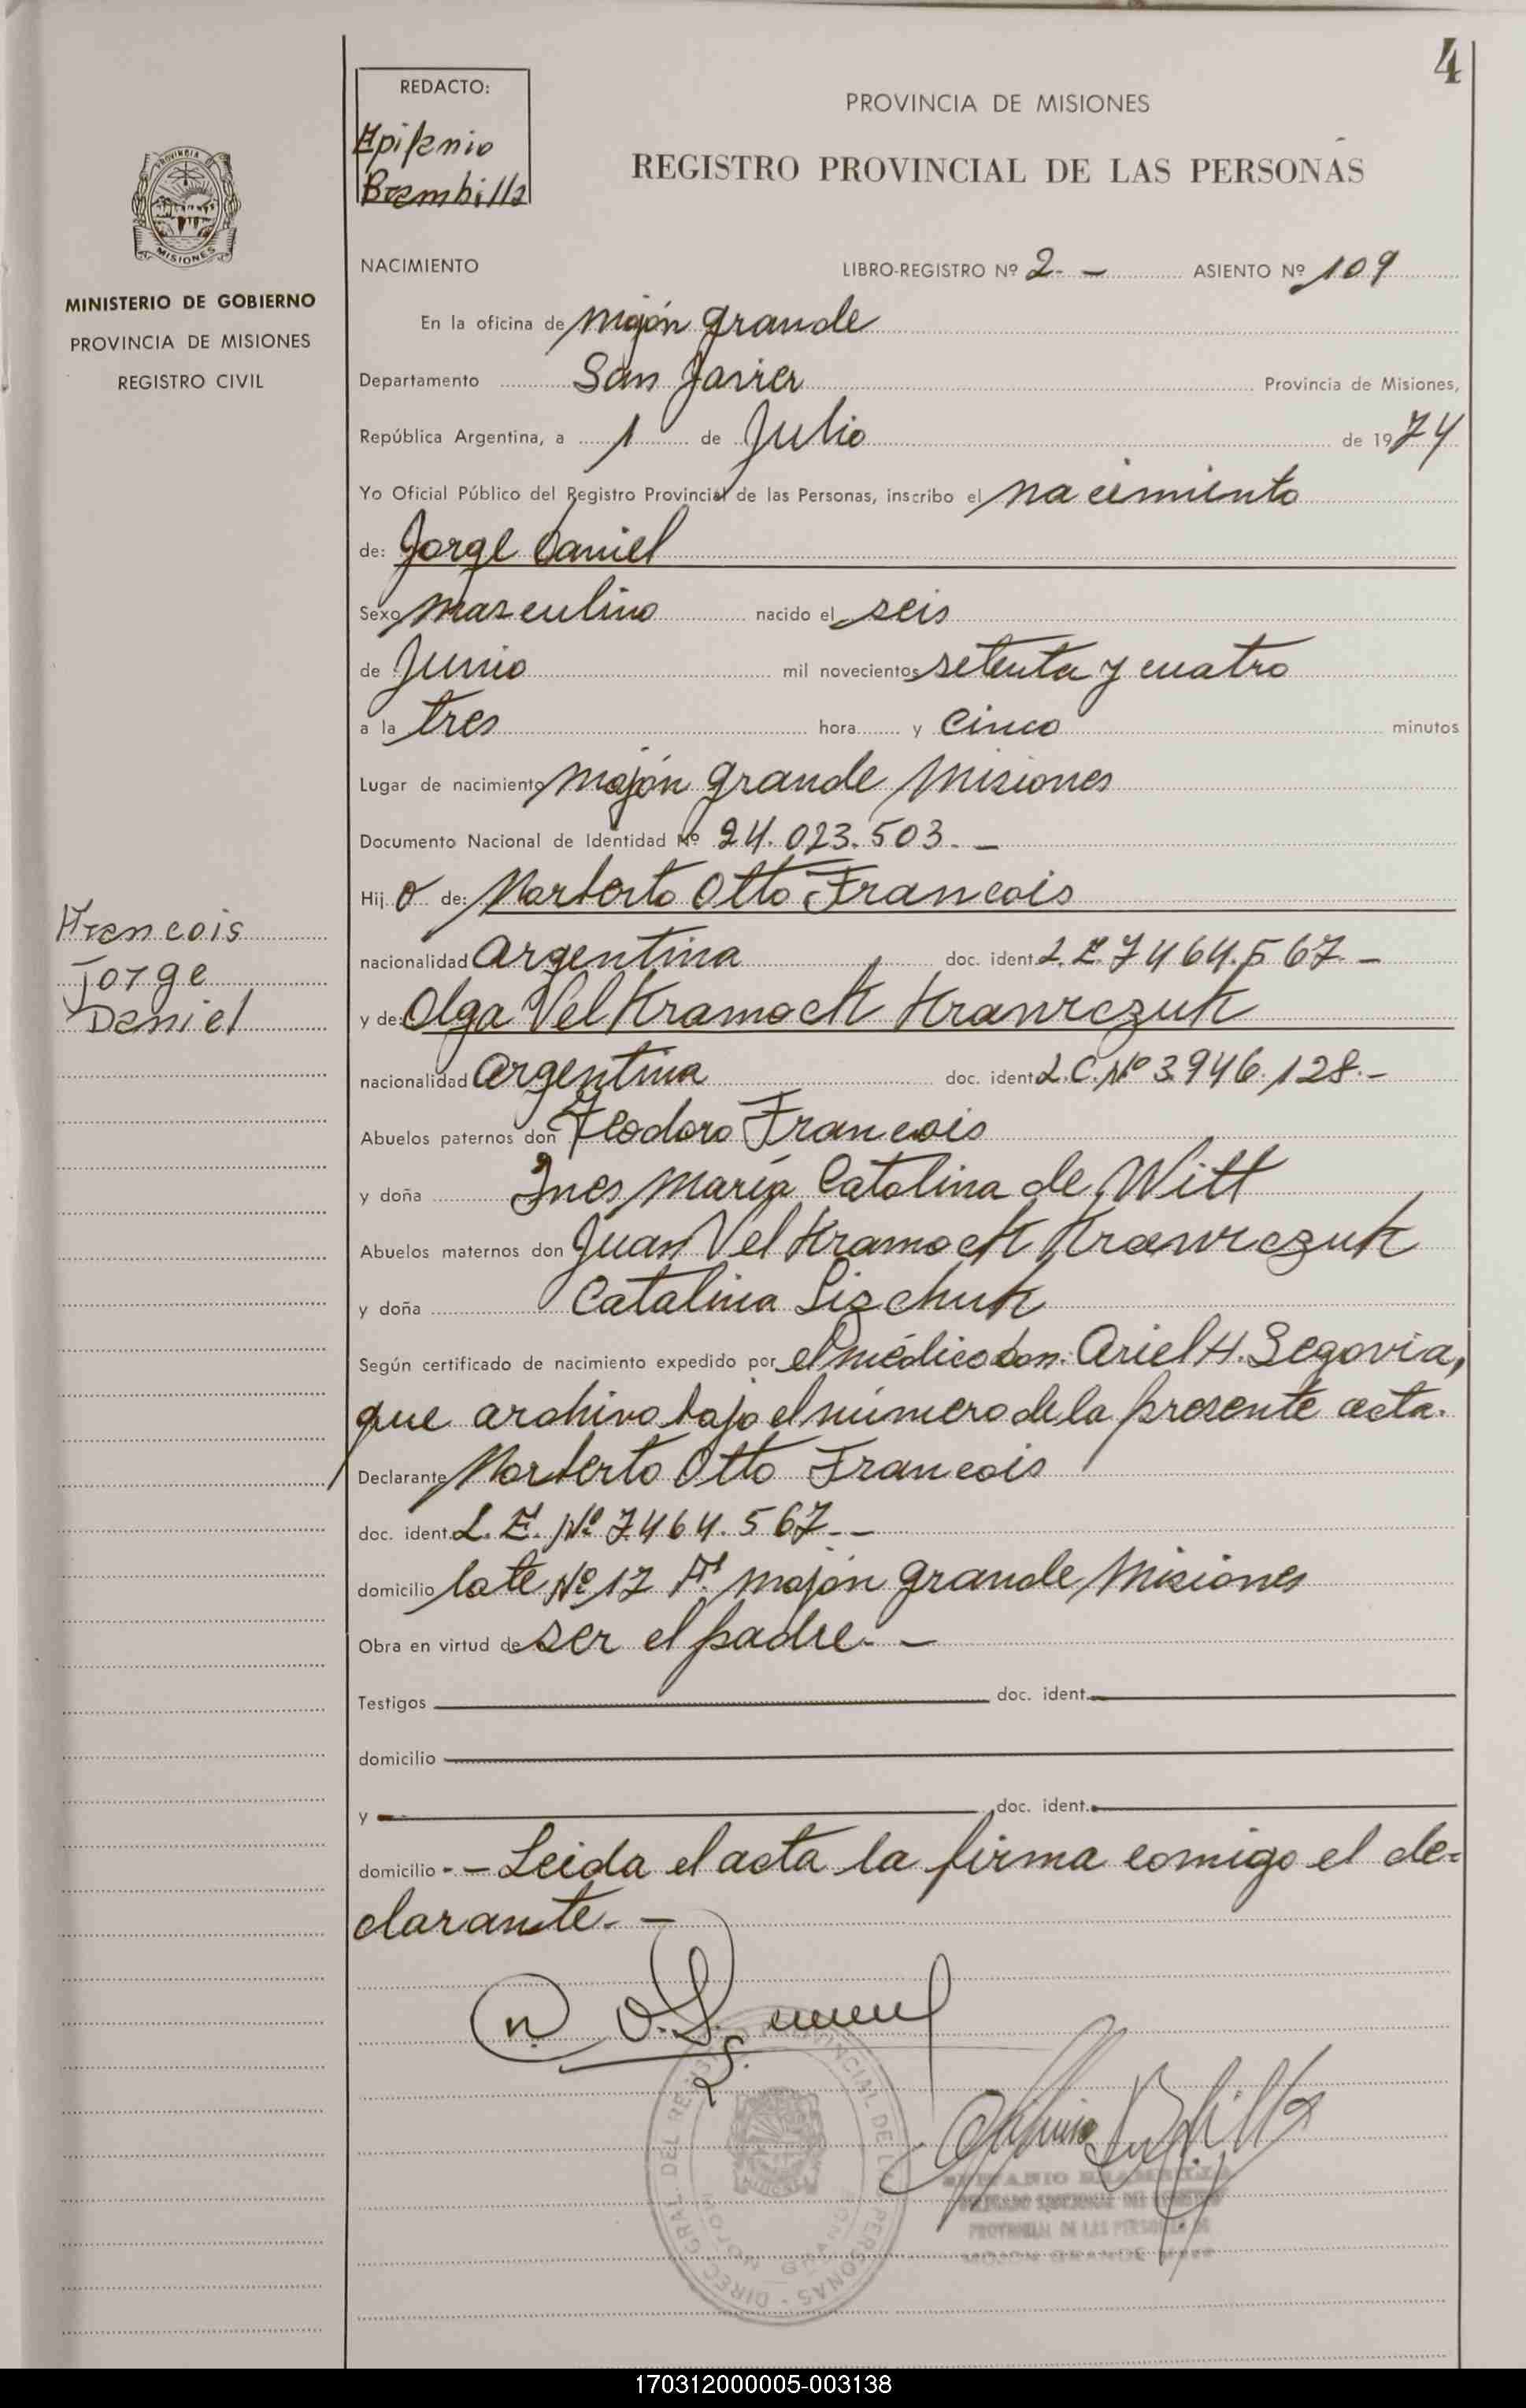 4
REDACTO:
Epifanio
Brambilla
PROVINCIA DE MISIONES
REGISTRO PROVINCIAL DE LAS PERSONAS
PROVINCIA DE
MISIONES
MINISTERIO DE GOBIERNO
PROVINCIA DE MISIONES
REGISTRO CIVIL
NACIMIENTO LIBRO-REGISTRO Nº 2.- ASIENTO Nº 109
En la oficina de Mojón Grande
Departamento San Javier Provincia de Misiones,
República Argentina, a 1 de Julio de 1974
Yo Oficial Público del Registro Provincial de las Personas, inscribo el nacimiento
de: Jorge Daniel
Sexo masculino nacido el seis
de Junio mil novecientos setenta y cuatro
a la tres hora y cinco minutos
Lugar de nacimiento Mojón Grande Misiones
Documento Nacional de Identidad Nº 24.023.503.-
Hijo de: Norberto Otto Francois
nacionalidad Argentina doc. ident. L.E. 7464.567-
y de: Olga Vel Kramock Krawczuk
nacionalidad Argentina doc. ident. L.C. Nº 3.946.128.-
Abuelos paternos don Teodoro Francois
y doña Ines María Catalina de Witt
Abuelos maternos don Juan Vel Kramock Krawczuk
y doña Catalina Lischuk
Según certificado de nacimiento expedido por el médico don: Ariel H. Segovia,
que archivo bajo el número de la presente acta.
Declarante Norberto Otto Francois
doc. ident. L.E. Nº 7464.567.-
domicilio lote Nº 17 A. Mojón Grande Misiones
Obra en virtud de ser el padre.-
Testigos doc. ident.
domicilio
y doc. ident.
domicilio - - Leida el acta la firma comigo el de-
clarante.-
Francois
Jorge
Daniel
DIREC. GRAL. DEL REGISTRO PROVINCIAL DE LAS PERSONAS
MOJON GRANDE
EPIFANIO BRAMBILLA
PROVINCIAL DE LAS PERSONAS DE
MOJON GRANDE
170312000005-003138